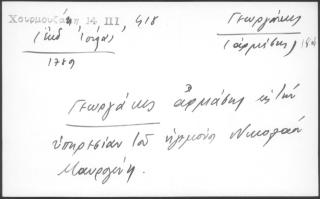 Χουρμουζάκη 14 ΙΙΙ, 418
Γεωργάκης
(ἀρμάσης)
1789
Γεωργάκης ἀρμάσης εἰς τὴν
ὑπηρεσίαν τοῦ ἡγεμόνος Νικολάου
Μαυρογένη.